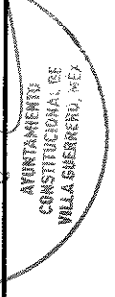 AYUNTAMIENTO
CONSTITUCIONAL DE
VILLA GUERRERO, MÉX